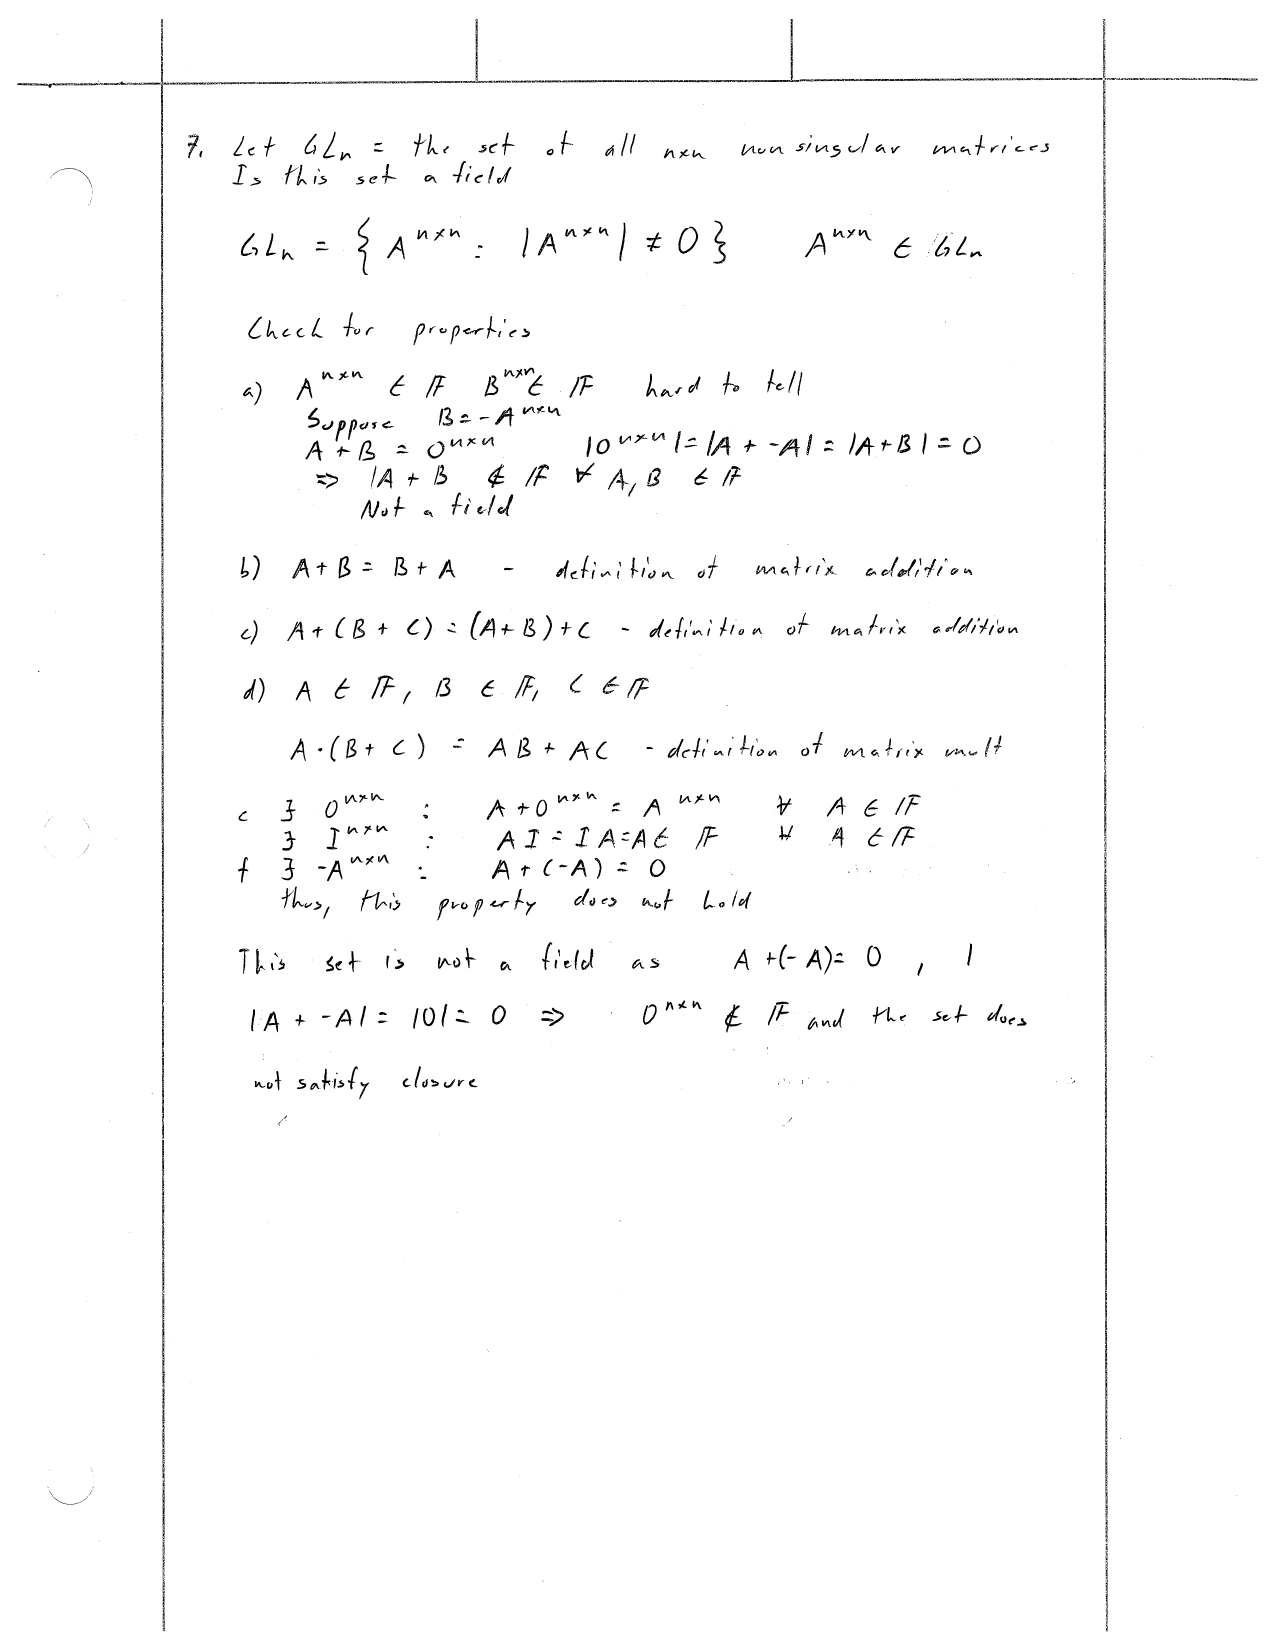 7. Let GLn = the set of all nxn nonsingular matrices
Is this set a field
GLn = { A^nxn : |A^nxn| ≠ 0 } A^nxn ∈ GLn
Check for properties
a) A^nxn ∈ F B^nxn ∈ F hard to tell
Suppose B = -A^nxn
A + B = 0^nxn |0^nxn| = |A + -A| = |A+B| = 0
⇒ |A + B ∉ F ∀ A, B ∈ F
Not a field
b) A+B = B+A - definition of matrix addition
c) A+(B+C) = (A+B)+C - definition of matrix addition
d) A ∈ F, B ∈ F, C ∈ F
A·(B+C) = AB + AC - definition of matrix mult
e ∃ 0^nxn : A+0^nxn = A^nxn ∀ A ∈ F
∃ I^nxn : AI = IA = A ∈ F ∀ A ∈ F
f ∃ -A^nxn : A+(-A) = 0
thus, this property does not hold
This set is not a field as A+(-A) = 0 , |
|A + -A| = |0| = 0 ⇒ 0^nxn ∉ F and the set does
not satisfy closure